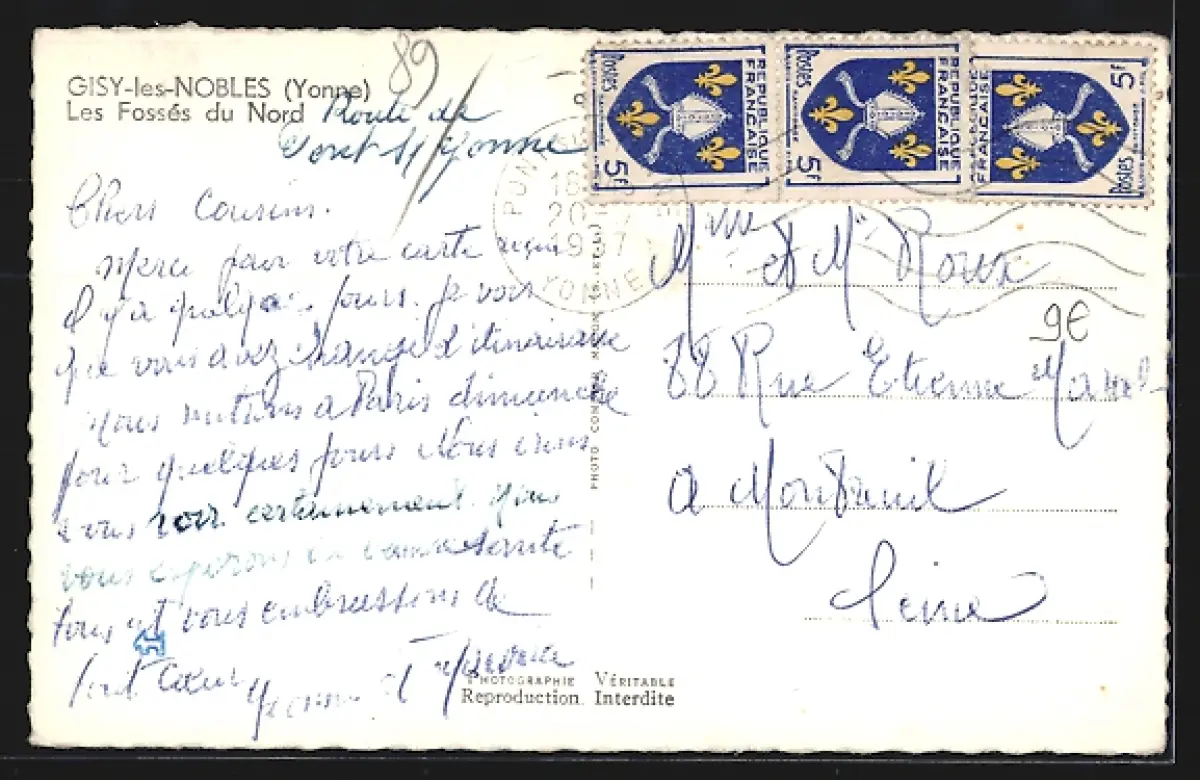 GISY-les-NOBLES (Yonne)
Les Fossés du Nord
89
Route de
Pont s/ Yonne
Chers Cousins.
Merci pour votre carte reçu
il y a quelque jours. Je vois
que vous avez changé d'itinairaire
Nous rentrons a Paris dimanche
pour quelques jours Nous irons
a vous voir certainement. Nous
vous esperons en bonne santé
tous et vous embrassons de
tout Cœur
Yvonne et
REPUBLIQUE FRANÇAISE
Postes
5f
REPUBLIQUE FRANÇAISE
Postes
5f
REPUBLIQUE FRANÇAISE
Postes
5f
18
20-7
1957
YONNE
Mme et Mr Roux
9€
88 Rue Etienne Marcel
a Montreuil
Seine
PHOTOGRAPHIE VÉRITABLE
Reproduction Interdite